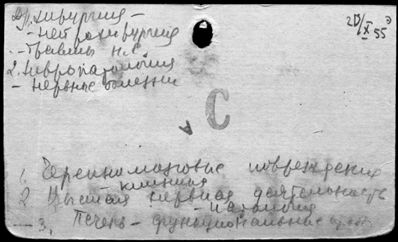 хирургия -
- нейрохирургия
- травмы н.с.
2. Невропатология
- нервные болезни
X 55
С
1. Черепномозговые повреждения
- клиника
2. Высшая нервная деятельность
патология
3. Печень - функциональные